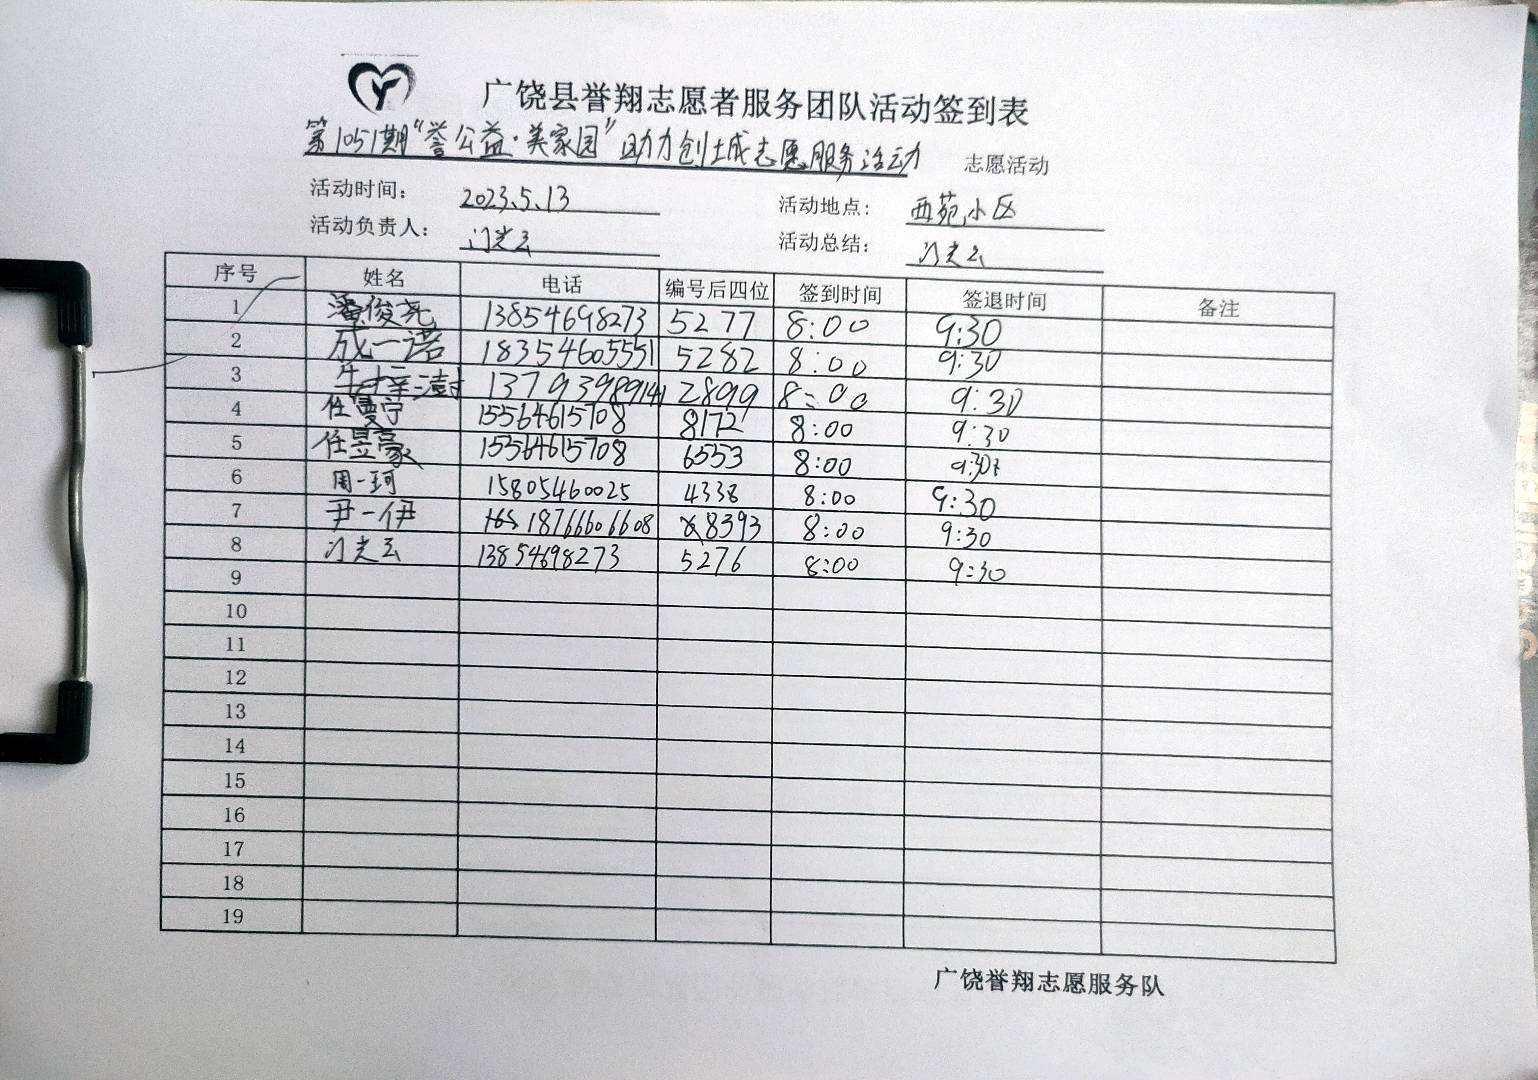 广饶县誉翔志愿者服务团队活动签到表
第1051期“誉公益·美家园”助力创城志愿服务活动 志愿活动
活动时间： 2023.5.13 活动地点： 西苑小区
活动负责人： 门光云 活动总结： 门光云
序号 姓名 电话 编号后四位 签到时间 签退时间 备注
1 潘俊尧 13854698273 5277 8:00 9:30
2 成一诺 18354605551 5282 8:00 9:30
3 13793989141 2899 8:00 9:30
4 任曼宁 15564615708 8172 8:00 9:30
5 任昱豪 15564615708 6553 8:00 9:30
6 周一珂 15805460025 4338 8:00 9:30
7 尹一伊 18766606608 8393 8:00 9:30
8 门光云 13854698273 5276 8:00 9:30
9
10
11
12
13
14
15
16
17
18
19
广饶誉翔志愿服务队